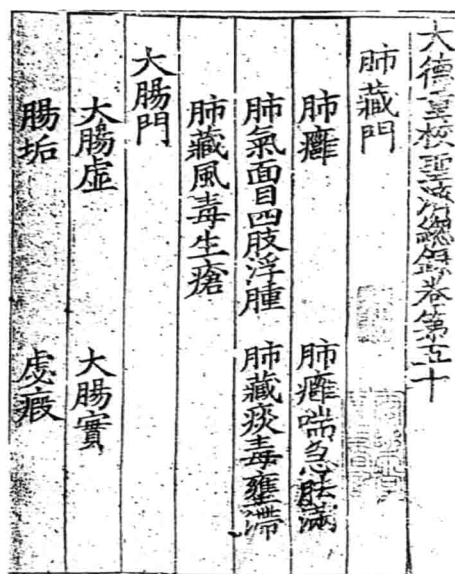 大德重校聖濟總錄卷第五十
肺藏門
肺癕　肺癕喘急胠滿
肺氣面目四肢浮腫　肺藏痰毒壅滯
肺藏風毒生瘡
大腸門
大腸虛　大腸實
腸垢　虙瘕